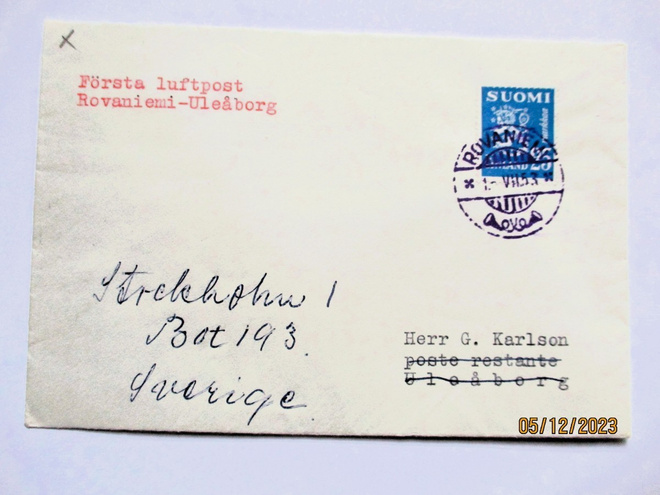 Första luftpost
Rovaniemi-Uleåborg
SUOMI
25
ROVANIEMI
1.-VII.53
Stockholm 1
Box 193
Sverige.
Herr G. Karlson
poste restante
Uleåborg
05/12/2023